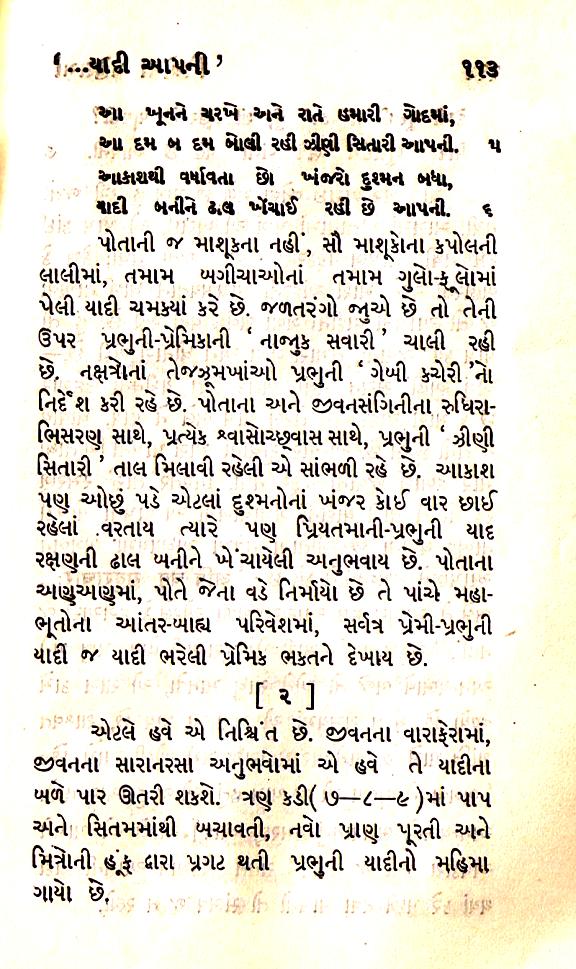 '...યાદી આપની' ૧૧૩
આ ખૂનને ચરખે અને રાતે હમારી ગોદમાં,
આ દમ બ દમ બોલી રહી ઝીણી સિતારી આપની. ૫
આકાશથી વર્ષાવતા છો ખંજરો દુશ્મન બધા,
યાદી બનીને ઢાલ ખેંચાઈ રહી છે આપની. ૬
પોતાની જ માશૂકના નહીં, સૌ માશૂકોના કપોલની
લાલીમાં, તમામ બગીચાઓનાં તમામ ગુલો-ફૂલોમાં
પેલી યાદી ચમક્યાં કરે છે. જળતરંગો જુએ છે તો તેની
ઉપર પ્રભુની-પ્રેમિકાની 'નાજુક સવારી' ચાલી રહી
છે. નક્ષત્રોનાં તેજઝૂમખાંઓ પ્રભુની 'ગેબી કચેરી'નો
નિર્દેશ કરી રહે છે. પોતાના અને જીવનસંગિનીના રુધિરા-
ભિસરણ સાથે, પ્રત્યેક શ્વાસોચ્છ્વાસ સાથે, પ્રભુની 'ઝીણી
સિતારી' તાલ મિલાવી રહેલી એ સાંભળી રહે છે. આકાશ
પણ ઓછું પડે એટલાં દુશ્મનોનાં ખંજર કોઈ વાર છાઈ
રહેલાં વરતાય ત્યારે પણ પ્રિયતમાની-પ્રભુની યાદ
રક્ષણની ઢાલ બનીને ખેંચાયેલી અનુભવાય છે. પોતાના
અણુઅણુમાં, પોતે જેના વડે નિર્માયો છે તે પાંચે મહા-
ભૂતોના આંતર-બાહ્ય પરિવેશમાં, સર્વત્ર પ્રેમી-પ્રભુની
યાદી જ યાદી ભરેલી પ્રેમિક ભક્તને દેખાય છે.
[ ૨ ]
એટલે હવે એ નિશ્ચિંત છે. જીવનના વારાફેરામાં,
જીવનના સારાનરસા અનુભવોમાં એ હવે તે યાદીના
બળે પાર ઊતરી શકશે. ત્રણ કડી(૭—૮—૯)માં પાપ
અને સિતમમાંથી બચાવતી, નવો પ્રાણ પૂરતી અને
મિત્રોની હૂંફ દ્વારા પ્રગટ થતી પ્રભુની યાદીનો મહિમા
ગાયો છે.